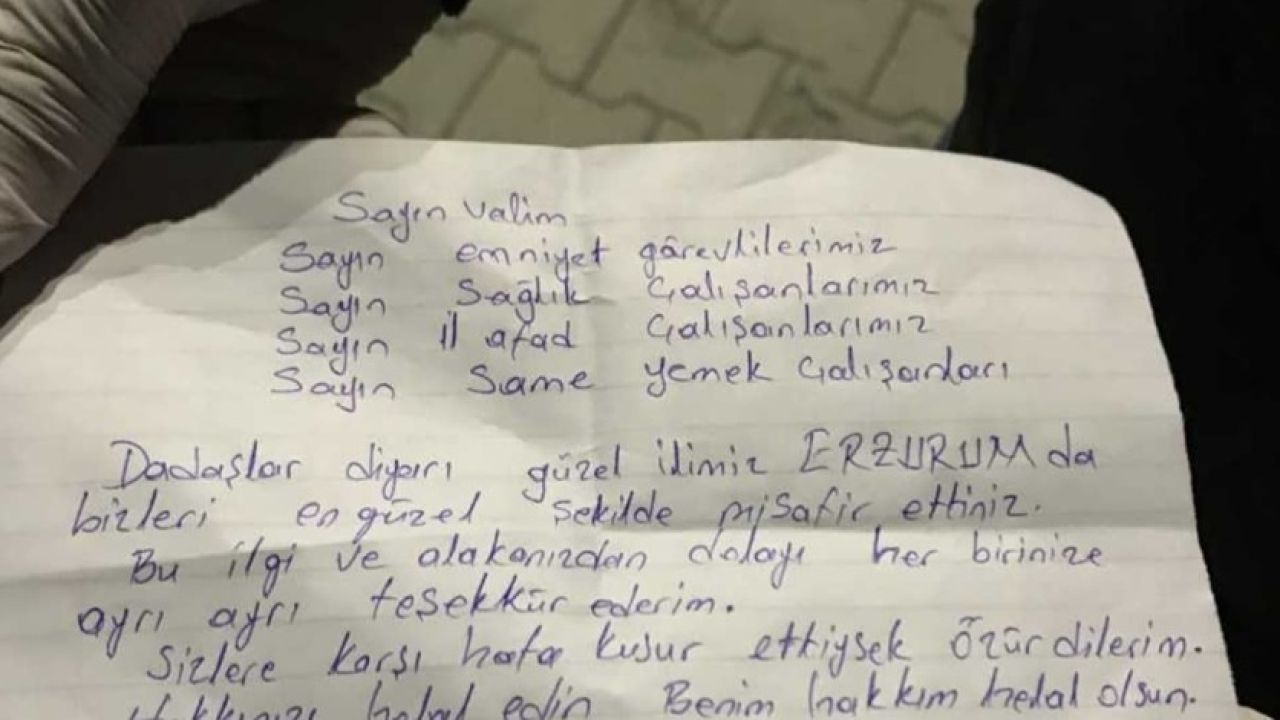 Sayın valim
Sayın emniyet görevlilerimiz
Sayın Sağlık Çalışanlarımız
Sayın İl afad Çalışanlarımız
Sayın Same yemek Çalışanları
Dadaşlar diyarı güzel ilimiz ERZURUM da
bizleri en güzel şekilde misafir ettiniz.
Bu ilgi ve alakanızdan dolayı her birinize
ayrı ayrı teşekkür ederim.
Sizlere karşı hata kusur ettiysek Özür dilerim.
Hakkınızı helal edin Benim hakkım helal olsun.